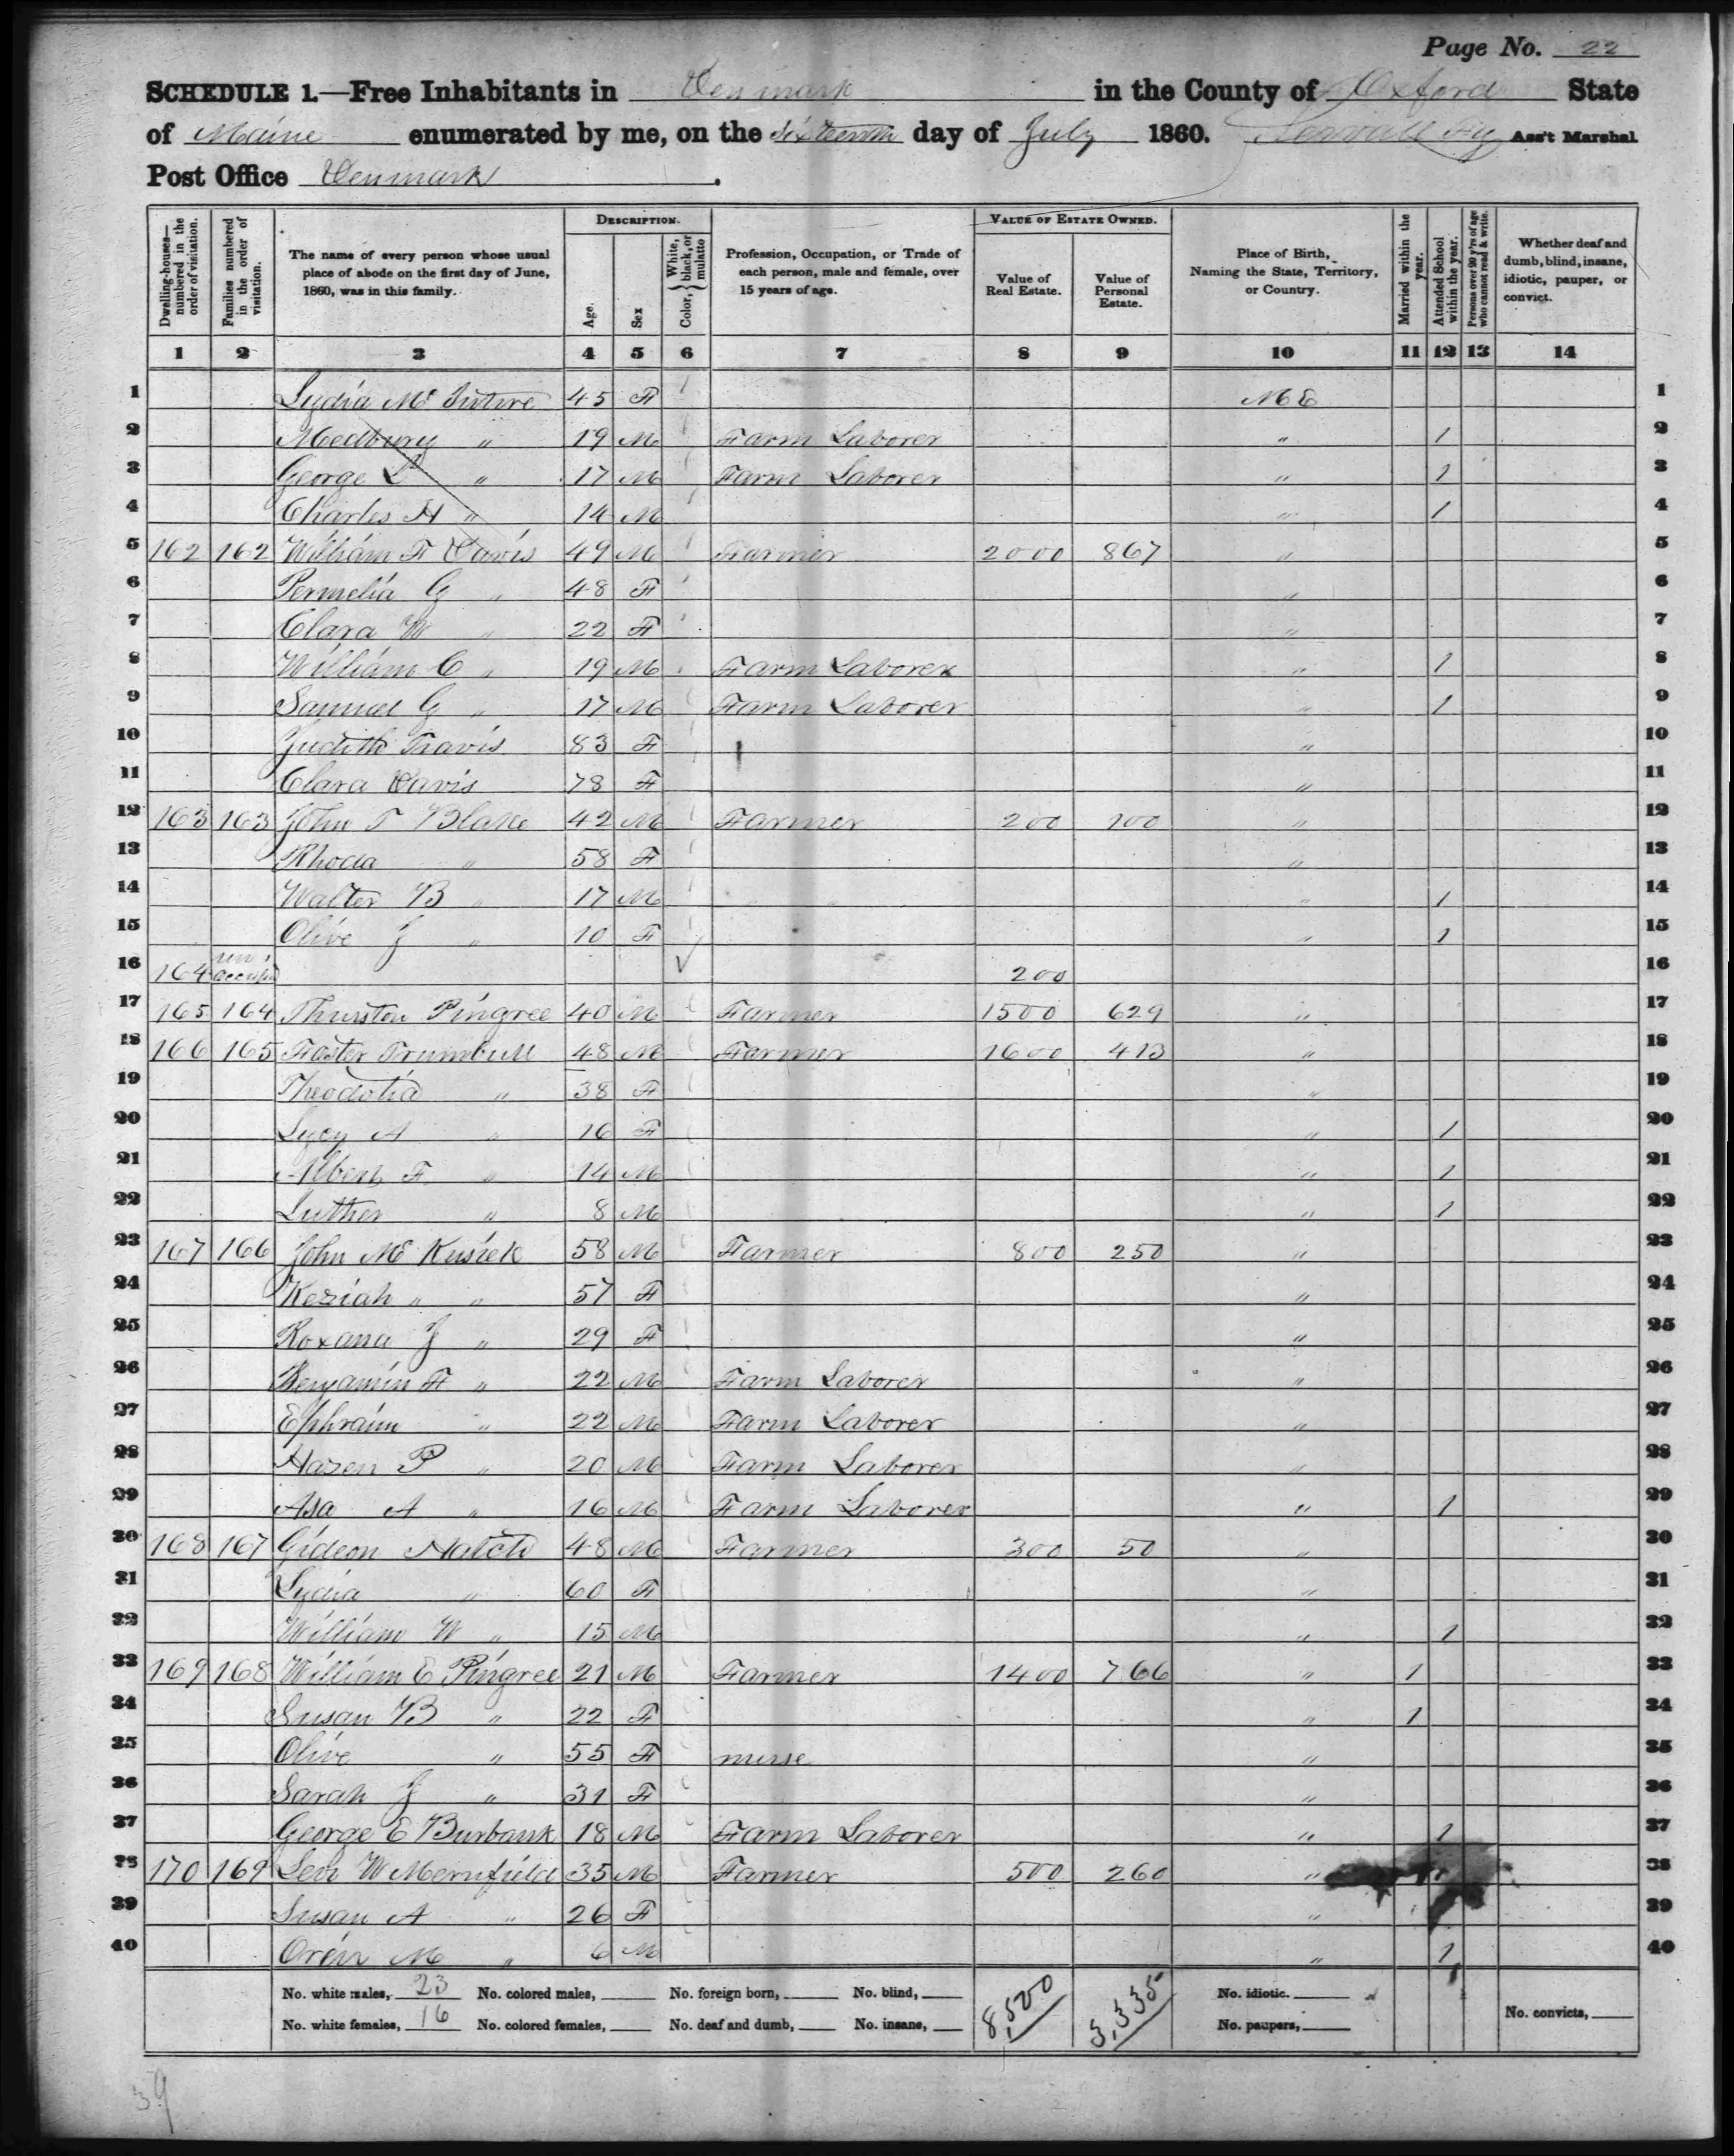 Page No. 22
SCHEDULE 1.—Free Inhabitants in Denmark in the County of Oxford State
of Maine enumerated by me, on the sixteenth day of July 1860. Ass't Marshal
Post Office Denmark.
Dwelling-houses—numbered in the order of visitation.
Families numbered in the order of visitation.
The name of every person whose usual place of abode on the first day of June, 1860, was in this family.
DESCRIPTION.
Age.
Sex
Color, White, black, or mulatto
Profession, Occupation, or Trade of each person, male and female, over 15 years of age.
VALUE OF ESTATE OWNED.
Value of Real Estate.
Value of Personal Estate.
Place of Birth, Naming the State, Territory, or Country.
Married within the year.
Attended School within the year.
Persons over 20 y'rs of age who cannot read & write.
Whether deaf and dumb, blind, insane, idiotic, pauper, or convict.
1 2 3 4 5 6 7 8 9 10 11 12 13 14
1 Lydia Mc Intire 45 F ME 1
2 Medbury " 19 M Farm Laborer " 1 2
3 George L " 17 M Farm Laborer " 1 3
4 Charles H " 14 M " 1 4
5 162 162 William F Davis 49 M Farmer 2000 867 " 5
6 Permelia G " 48 F " 6
7 Clara W " 22 F " 7
8 William C " 19 M Farm Laborer " 1 8
9 Samuel G " 17 M Farm Laborer " 1 9
10 Judith Travis 83 F " 10
11 Clara Davis 78 F " 11
12 163 163 John T Blake 42 M Farmer 200 100 " 12
13 Rhoda " 58 F " 13
14 Walter B " 17 M " 1 14
15 Olive J " 10 F " 1 15
16 164 un occupied 200 16
17 165 164 Thurston Pingree 40 M Farmer 1500 629 " 17
18 166 165 Foster Trumbull 48 M Farmer 1600 413 " 18
19 Theodotia " 38 F " 19
20 Lucy A " 16 F " 1 20
21 Albert F " 14 M " 1 21
22 Luther " 8 M " 1 22
23 167 166 John Mc Kusick 58 M Farmer 800 250 " 23
24 Keziah " " 57 F " 24
25 Roxana J " 29 F " 25
26 Benjamin F " 22 M Farm Laborer " 26
27 Ephraim " 22 M Farm Laborer " 27
28 Hazen P " 20 M Farm Laborer " 28
29 Asa A " 16 M Farm Laborer " 1 29
30 168 167 Gideon Hatch 48 M Farmer 300 50 " 30
31 Lydia " 60 F " 31
32 William W " 15 M " 1 32
33 169 168 William E Pingree 21 M Farmer 1400 766 " 1 33
34 Susan B " 22 F " 1 34
35 Olive " 55 F nurse " 35
36 Sarah J " 31 F " 36
37 George E Burbank 18 M Farm Laborer " 1 37
38 170 169 Levi W Merrifield 35 M Farmer 500 260 " 38
39 Susan A " 26 F " 39
40 Oren M " 6 M " 1 40
No. white males, 23 No. colored males, No. foreign born, No. blind, 8,500 3,335 No. idiotic.
No. white females, 16 No. colored females, No. deaf and dumb, No. insane, No. paupers, No. convicts,
39